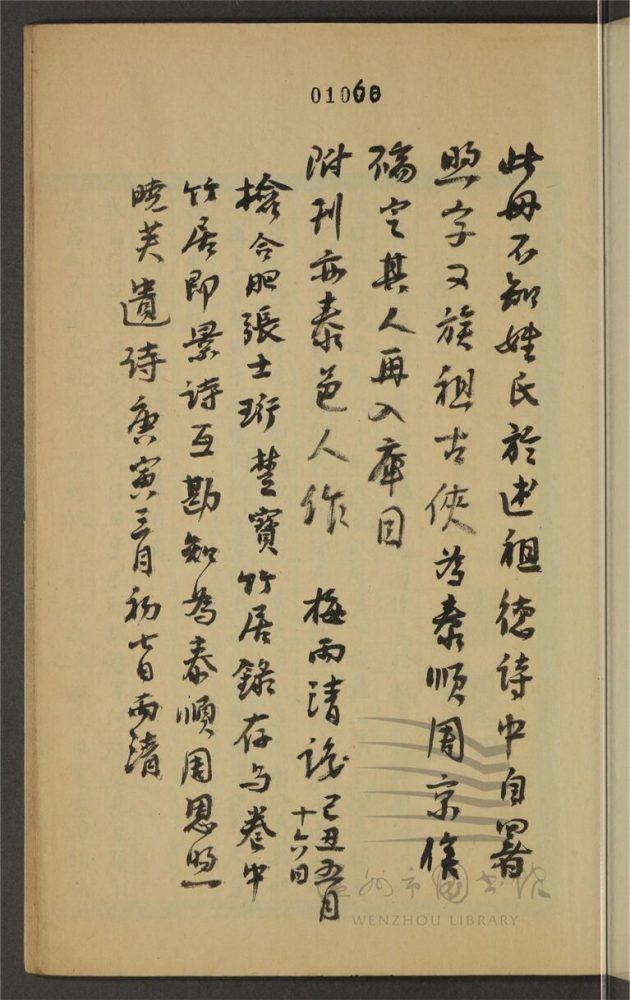 01068
此册不知姓氏於述祖德诗中自署
煦字又族祖古俠為泰順周京俟
確定其人再入庫目
附刊亦泰邑人作 梅雨清識 己丑五月
十六日
檢合肥張士珩楚寶竹居錄存与卷中
竹居即景诗互勘知為泰順周恩煦
曉芙遺诗庚寅三月初七日雨清
温州市圖书馆
WENZHOU LIBRARY